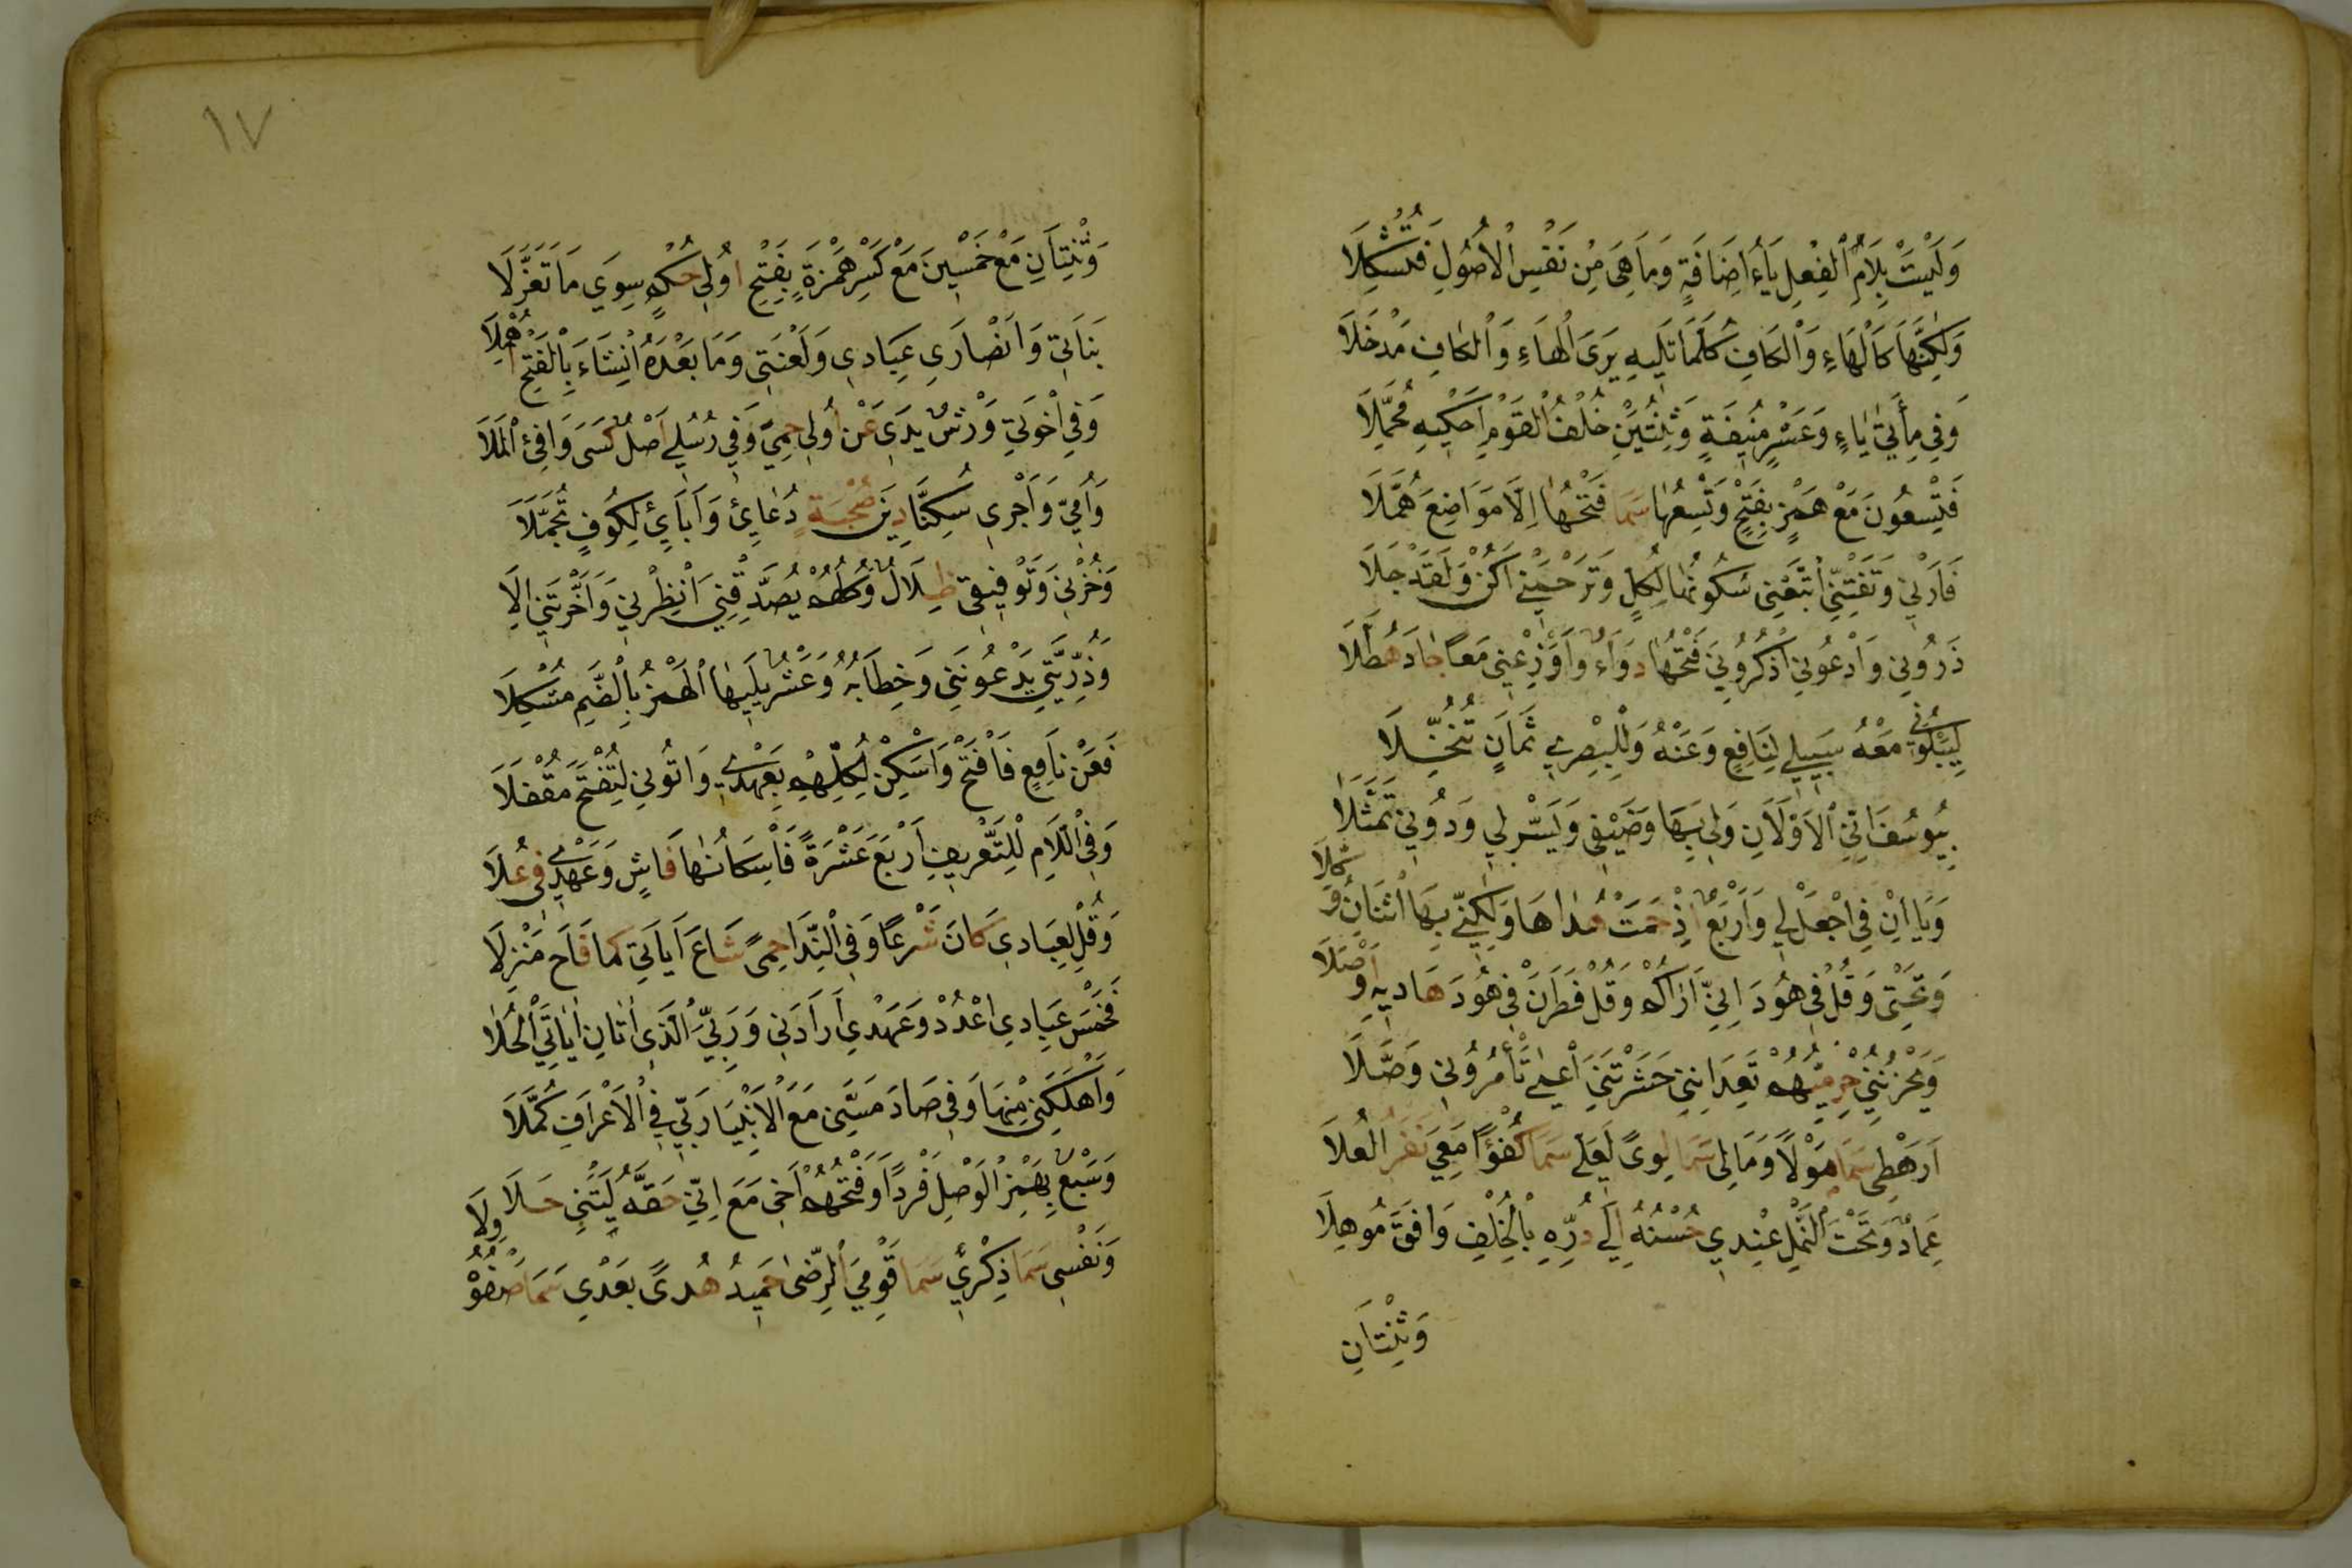 وَلَيْسَتْ بِلَامِ الْفِعْلِ يَاءُ اِضَافَةٍ وَمَا هِىَ مِنْ نَفْسِ الْاُصُولِ فَتُشْكِلَا
وَلٰكِنَّهَا كَالْهَاءِ وَالْكَافِ كُلُّمَا تَلِيهِ يَرَى الْهَاءِ وَالْكَافِ مَدْخَلَا
وَفِى مِأَتَىْ يَاءٍ وَعَشْرٍ مُنِيفَةٍ وَثِنْتَيْنِ خُلْفُ الْقَوْمِ اَحْكِيهِ مُجْمِلَا
فَتِسْعُونَ مَعْ هَمْزٍ بِفَتْحٍ وَتِسْعُهَا سَمَا فَتْحُهَا اِلَّا مَوَاضِعَ هُمَّلَا
فَاَرْنِى وَتَفْتِنِّى اتَّبِعْنِى سُكُونُهَا لِكُلٍّ وَتَرْحَمْنِى اَكُنْ وَلَقَدْ جَلَا
ذَرُونِى وَادْعُونِى اذْكُرُونِىَ فَتْحُهَا دَوَاءٌ وَاَوْزِعْنِى مَعًا جَادَ هُطَّلَا
لِيَبْلُوَنِى مَعْهُ سَبِيلِى لِنَافِعٍ وَعَنْهُ وَلِلْبِصْرِى ثَمَانٍ تُنُخِّلَا
بِيُوسُفَ اِنِّى الْاَوَّلَانِ وَلِى بِهَا وَضَيْفِى وَيَسِّرْلِى وَدُونِى تَمَثَّلَا
وَيَاانِ فِى اجْعَلْ لِى وَاَرْبَعٌ اِذْ حَمَتْ هُدَاهَا وَلٰكِنِّى بِهَا اثْنَانُ وُكِّلَا
وَتَحْتِى وَقُلْ فِى هُودَ اِنِّى اَرَاكُمُ وَقُلْ فَطَرَنْ فِى هُودَ هَادِيهِ اَوْصَلَا
وَيَحْزُنُنِى حِرْمِيُّهُمْ تَعِدَانِنِى حَشَرْتَنِى اَعْمٰى تَأْمُرُونِى وَصَّلَا
اَرَهْطِى سَمَا مَوْلًا وَمَالِى سَمَا لِوًى لَعَلِّى سَمَا كُفْؤًا مَعِى نَفَرُ الْعُلَا
عِمَادٌ وَتَحْتَ النَّمْلِ عِنْدِى حُسْنُهُ اِلٰى دُرِّهِ بِالْخُلْفِ وَافَقَ مُوهِلَا
وَثِنْتَانِ
١٧
وَثِنْتَانِ مَعْ خَمْسِينَ مَعْ كَسْرِ هَمْزَةٍ بِفَتْحِ اُولِى حُكْمٍ سِوَى مَا تَعَزَّلَا
بَنَاتِى وَاَنْصَارِى عِبَادِى وَلَعْنَتِى وَمَا بَعْدَهُ اِنْ شَاءَ بِالْفَتْحِ اُهْمِلَا
وَفِى اِخْوَتِى وَرْشٌ يَدِى عَنْ اُولِى حِمًى وَفِى رُسُلِى اَصْلٌ كَسَى وَافِىَ الْمَلَا
وَاُمِّى وَاَجْرِى سُكِّنَا دِينُ صُحْبَةٍ دُعَاءِى وَآبَاءِى لِكُوفٍ تَجَمَّلَا
وَحُزْنِى وَتَوْفِيقِى ظِلَالٌ وَكُلُّهُمْ يُصَدِّقْنِىَ اَنْظِرْنِى وَاَخَّرْتَنِى اِلٰى
وَذُرِّيَّتِى يَدْعُونَنِى وَخِطَابُهُ وَعَشْرٌ يَلِيهَا الْهَمْزُ بِالضَّمِّ مُشْكِلَا
فَعَنْ نَافِعٍ فَافْتَحْ وَاَسْكِنْ لِكُلِّهِمْ بِعَهْدِى وَاٰتُونِى لِتَفْتَحَ مُقْفَلَا
وَفِى اللَّامِ لِلتَّعْرِيفِ اَرْبَعَ عَشْرَةً فَاِسْكَانُهَا فَاشٍ وَعَهْدِى فِى عُلَا
وَقُلْ لِعِبَادِى كَانَ شَرْعًا وَفِى النِّدَا حِمًى شَاعَ اٰيَاتِى كَمَا فَاحَ مَنْزِلَا
فَخَمْسَ عِبَادِى اعْدُدْ وَعَهْدِى اَرَادَنِى وَرَبِّى الَّذِى اٰتَانِ اٰيَاتِى الْحُلَا
وَاَهْلَكَنِى مِنْهَا وَفِى صَادَ مَسَّنِى مَعَ الْاَنْبِيَا رَبِّى فِى الْاَعْرَافِ كَمَّلَا
وَسَبْعٌ بِهَمْزِ الْوَصْلِ فَرْدًا وَفَتْحُهُمْ اَخِى مَعَ اِنِّى حَقُّهُ لَيْتَنِى حَلَا
وَنَفْسِى سَمَا ذِكْرِى سَمَا قَوْمِى الرِّضٰى حَمِيدُ هُدًى بَعْدِى سَمَا صَفْوُهُ وِلَا